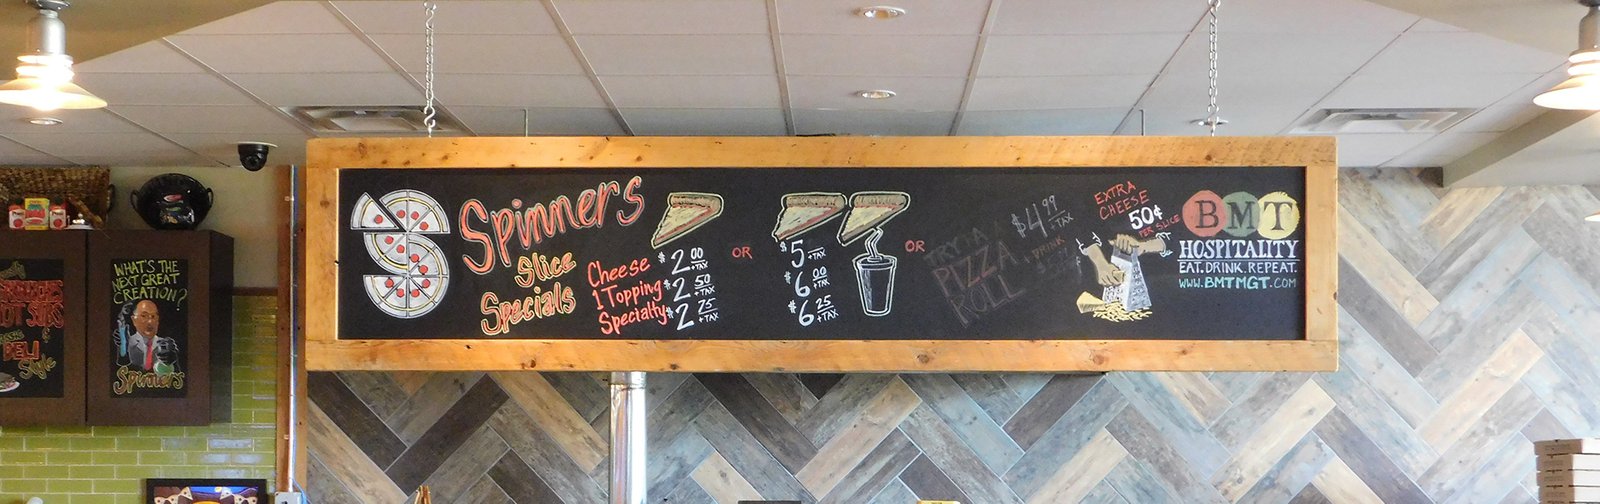 Spinners
Slice
Specials
Cheese
1 Topping
Specialty
$2 00 +TAX
$2 50 +TAX
$2 75 +TAX
OR
$5 +TAX
$6 00 +TAX
$6 25 +TAX
OR
TRY A
PIZZA
ROLL
$4 99 +TAX
+ DRINK
EXTRA
CHEESE
50¢
PER SLICE
BMT
HOSPITALITY
EAT. DRINK. REPEAT.
WWW.BMTMGT.COM
WHAT'S THE
NEXT GREAT
CREATION?
Spinners
DELI
Style